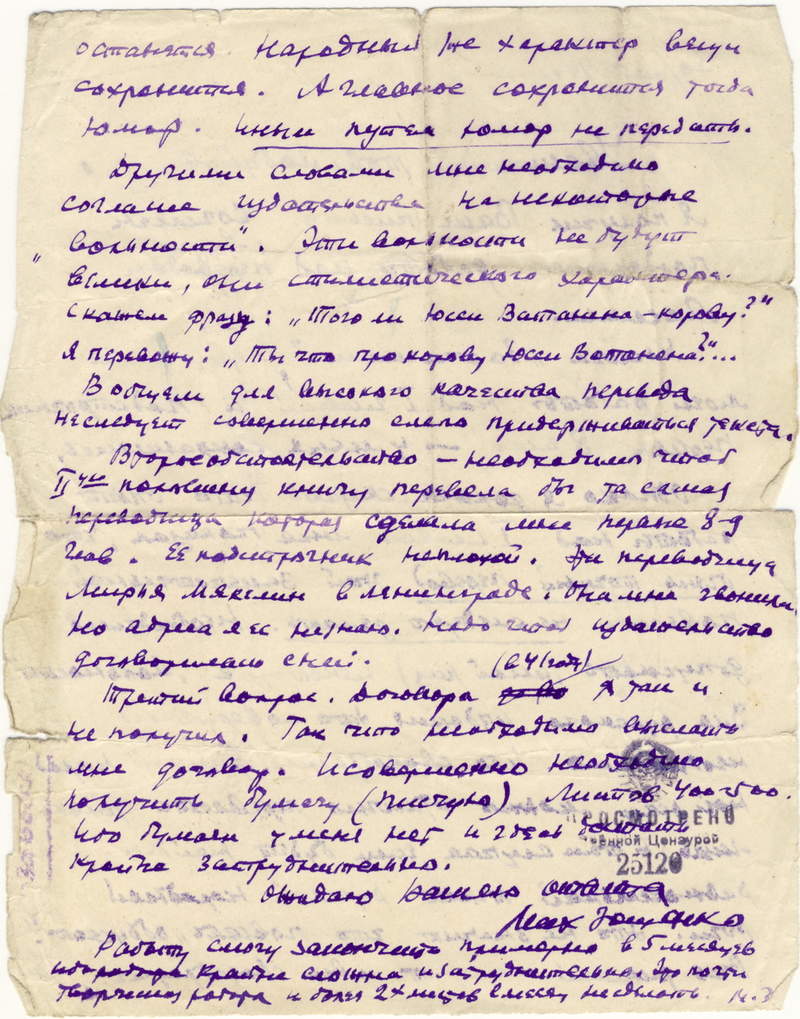 останется. Народный же характер вещи
сохранится. А главное сохранится тогда
юмор. Иным путем юмор не передать.
Другими словами мне необходимо
согласие издательства на некоторые
„вольности". Эти вольности не будут
велики, они стилистического характера.
Скажем фразу: „Того ли Юсси Ватанена – корову?"
Я перевожу: „Ты что про корову Юсси Ватанена?"...
В общем для высокого качества перевода
не следует совершенно слепо придерживаться текста.
Второе обстоятельство – необходимо чтоб
II-ую половину книги перевела бы та самая
переводчица которая сделала мне первые 8-9
глав. Ее подстрочник неплохой. Эта переводчица
Мирья Мякелин в Ленинграде. Она мне звонила.
Но адреса я ее не знаю. Надо чтоб издательство
договорилось с ней.
Третий вопрос. Договора (в 41 году) я так и
не получил. Так что необходимо выслать
мне договор. И совершенно необходимо
получить бумагу (писчую) листов 400-500.
Ибо бумаги у меня нет и здесь достать
крайне затруднительно.
ПРОСМОТРЕНО
Военной Цензурой
25120
Ожидаю Вашего ответа
Мих Зощенко
Работу смогу закончить примерно в 5 месяцев
ибо работа крайне сложна и затруднительна. Это почти
творческая работа и более 2х листов в месяц не сделать. М.З